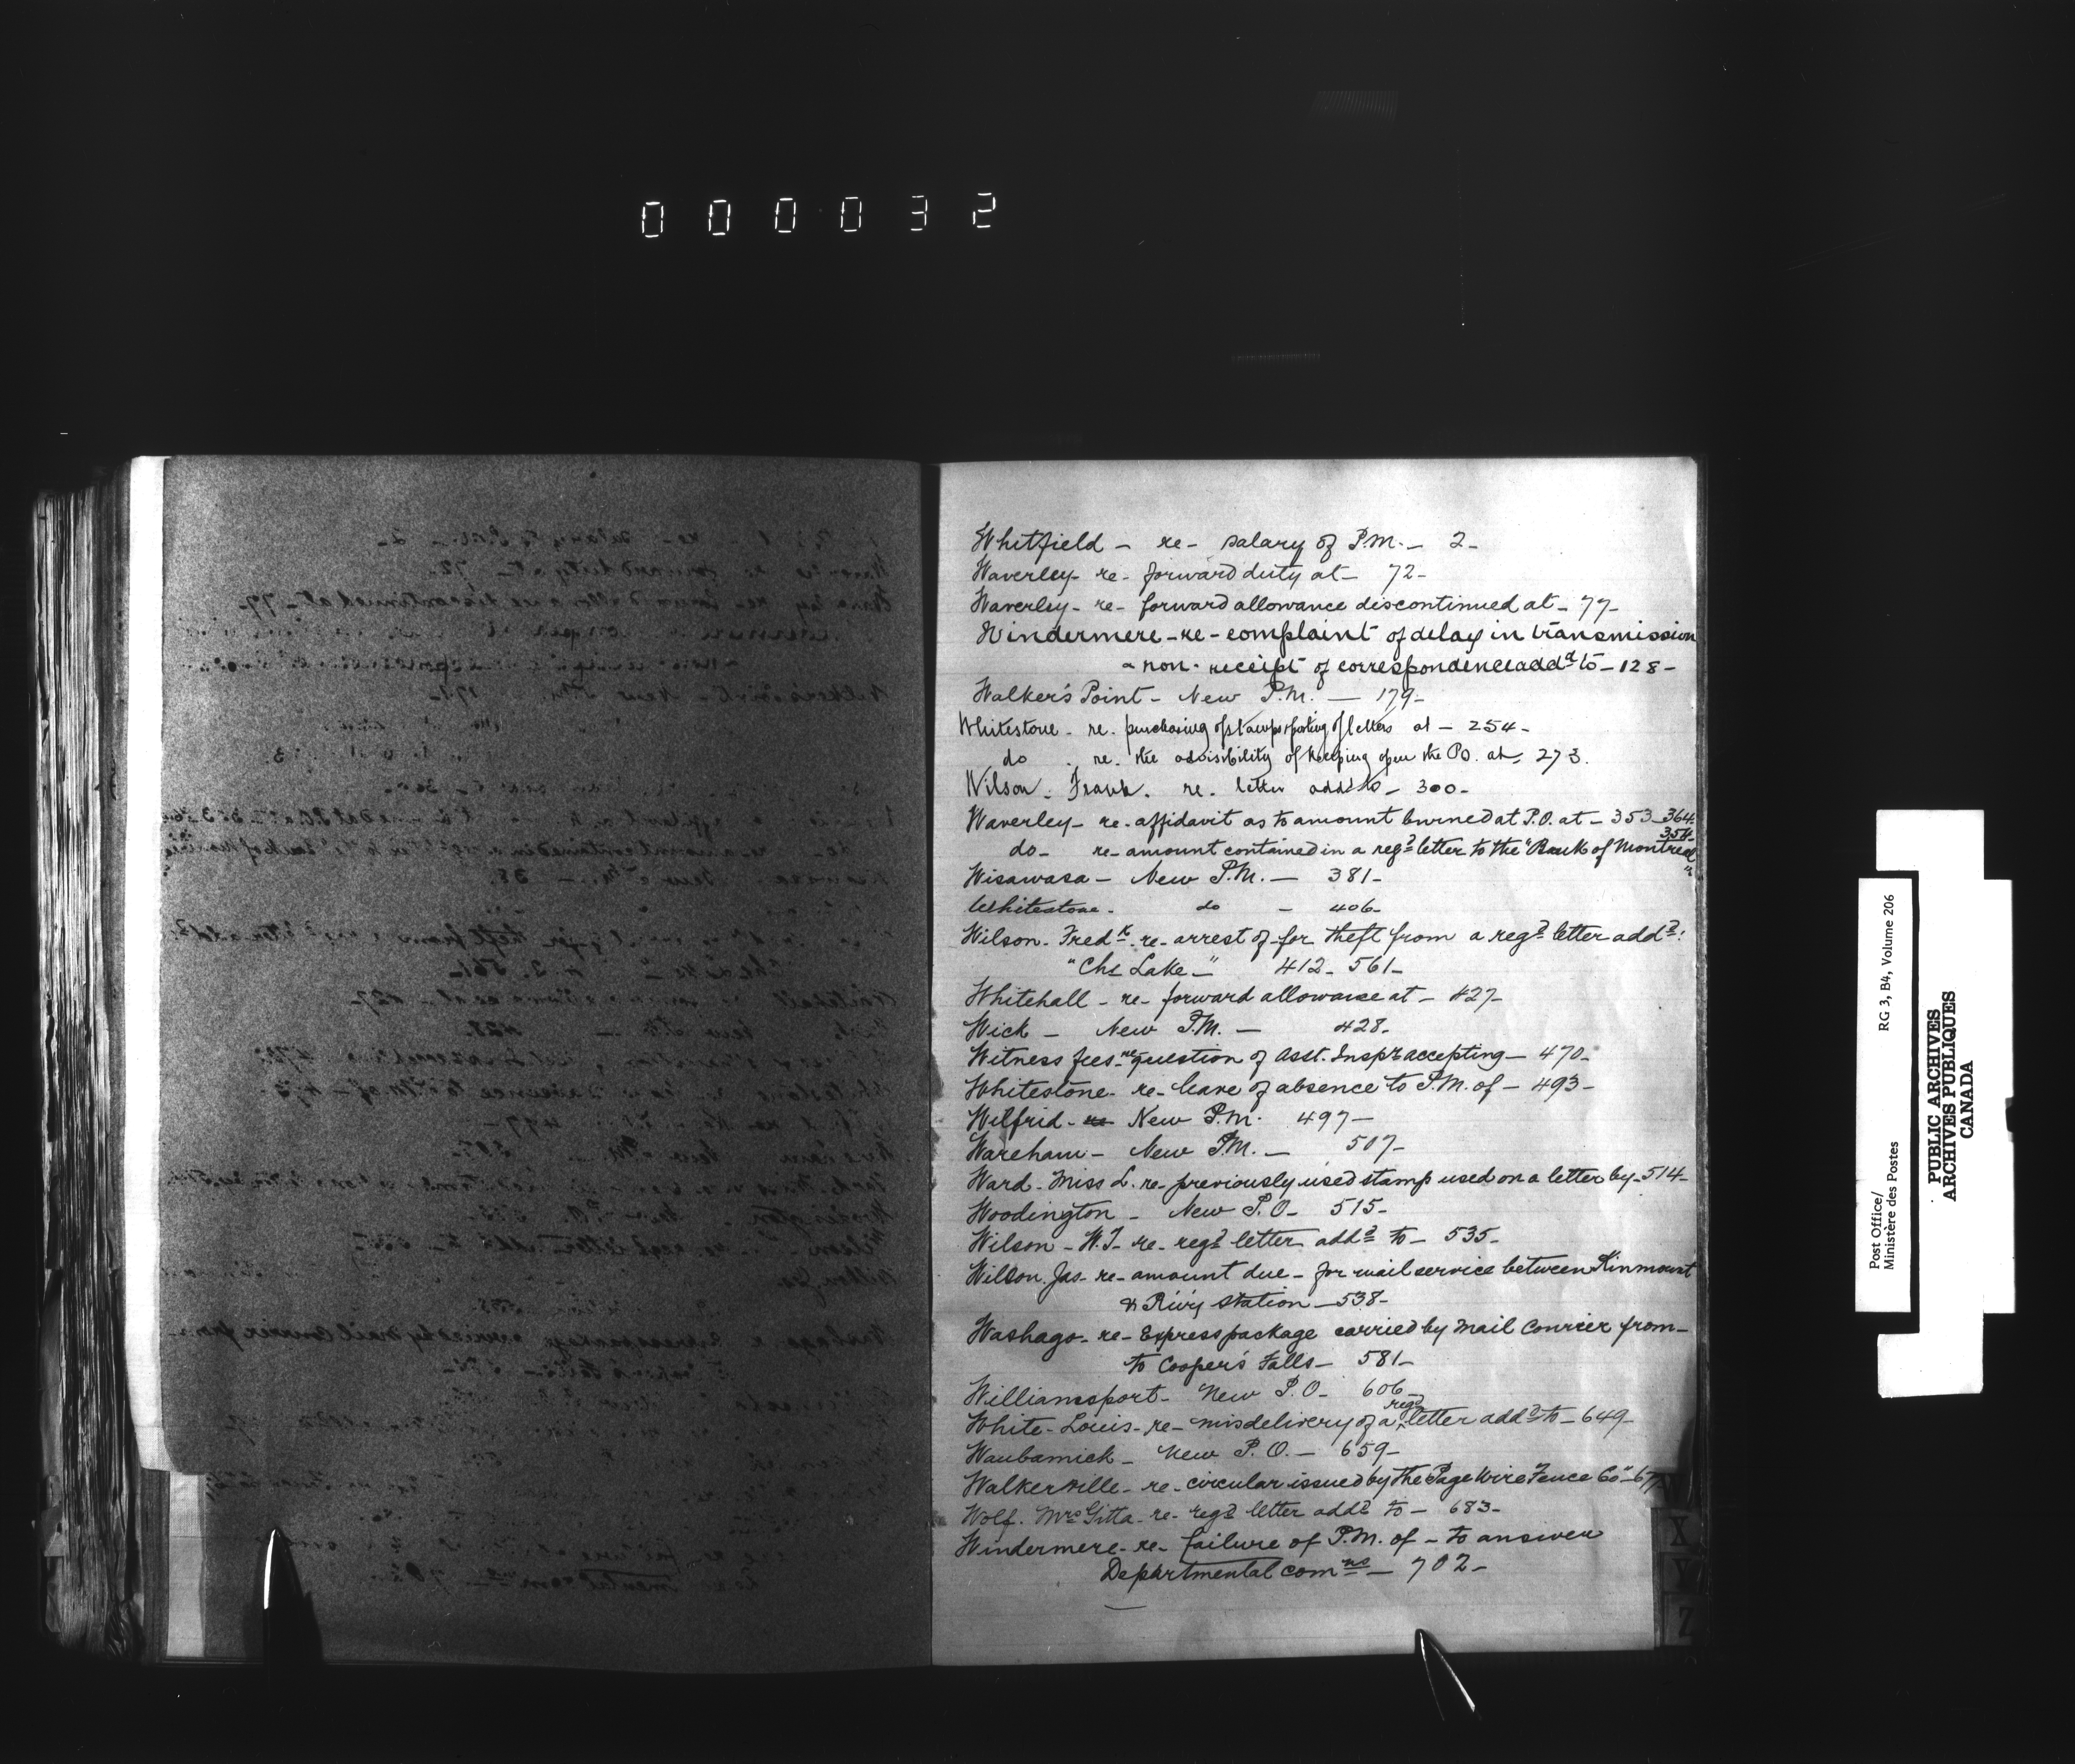 000032
Whitfield - re - salary of P.M. - 2 -
Waverley - re - forward duty at - 72 -
Waverley - re - forward allowance discontinued at - 77 -
Windermere - re - complaint of delay in transmission
& non-receipt of correspondence addd to - 128 -
Walker's Point - New P.M. - 179 -
Whitestone - re. purchasing of stamps & posting of letters at - 254 -
do . re. the advisibility of keeping open the P.O. at, 273.
Wilson. Frank. re. letter addd to - 300 -
Waverley - re - affidavit as to amount burned at P.O. at - 353 - 364
do - re - amount contained in a regd letter to the "Bank of Montreal" 354
Wisawasa - New P.M. - 381 -
Whitestone - do - 406 -
Wilson - Fredk - re - arrest of - for theft from a regd letter addd:
"Chs Lake -" 412 - 561 -
Whitehall - re - forward allowance at - 427 -
Wick - New P.M. - 428 -
Witness fees - re question of Asst. Inspr accepting - 470 -
Whitestone - re - leave of absence to P.M. of - 493 -
Wilfrid - re New P.M. 497 -
Wareham - New P.M. - 507 -
Ward - Miss L. re - previously used stamp used on a letter by - 514 -
Woodington - New P.O - 515 -
Wilson - W.J - re - regd letter addd to - 535 -
Wilson. Jas - re - amount due - for mail service between Kinmount
& R'w'y station - 538 -
Washago - re - Express package carried by Mail Courier from -
to Cooper's Falls - 581 -
Williamsport - New P.O - 606 -
White - Louis - re - misdelivery of a regd letter addd to - 649 -
Waubamick - New P.O. - 659 -
Walkerville - re - circular issued by "The Page Wire Fence Co" - 677
Wolf. Mrs Gitta - re - regd letter addd to - 683 -
Windermere - re - failure of P.M. of - to answer
Departmental comns - 702 -
X
Y
Z
Post Office/
Ministère des Postes
RG 3, B4, Volume 206
PUBLIC ARCHIVES
ARCHIVES PUBLIQUES
CANADA